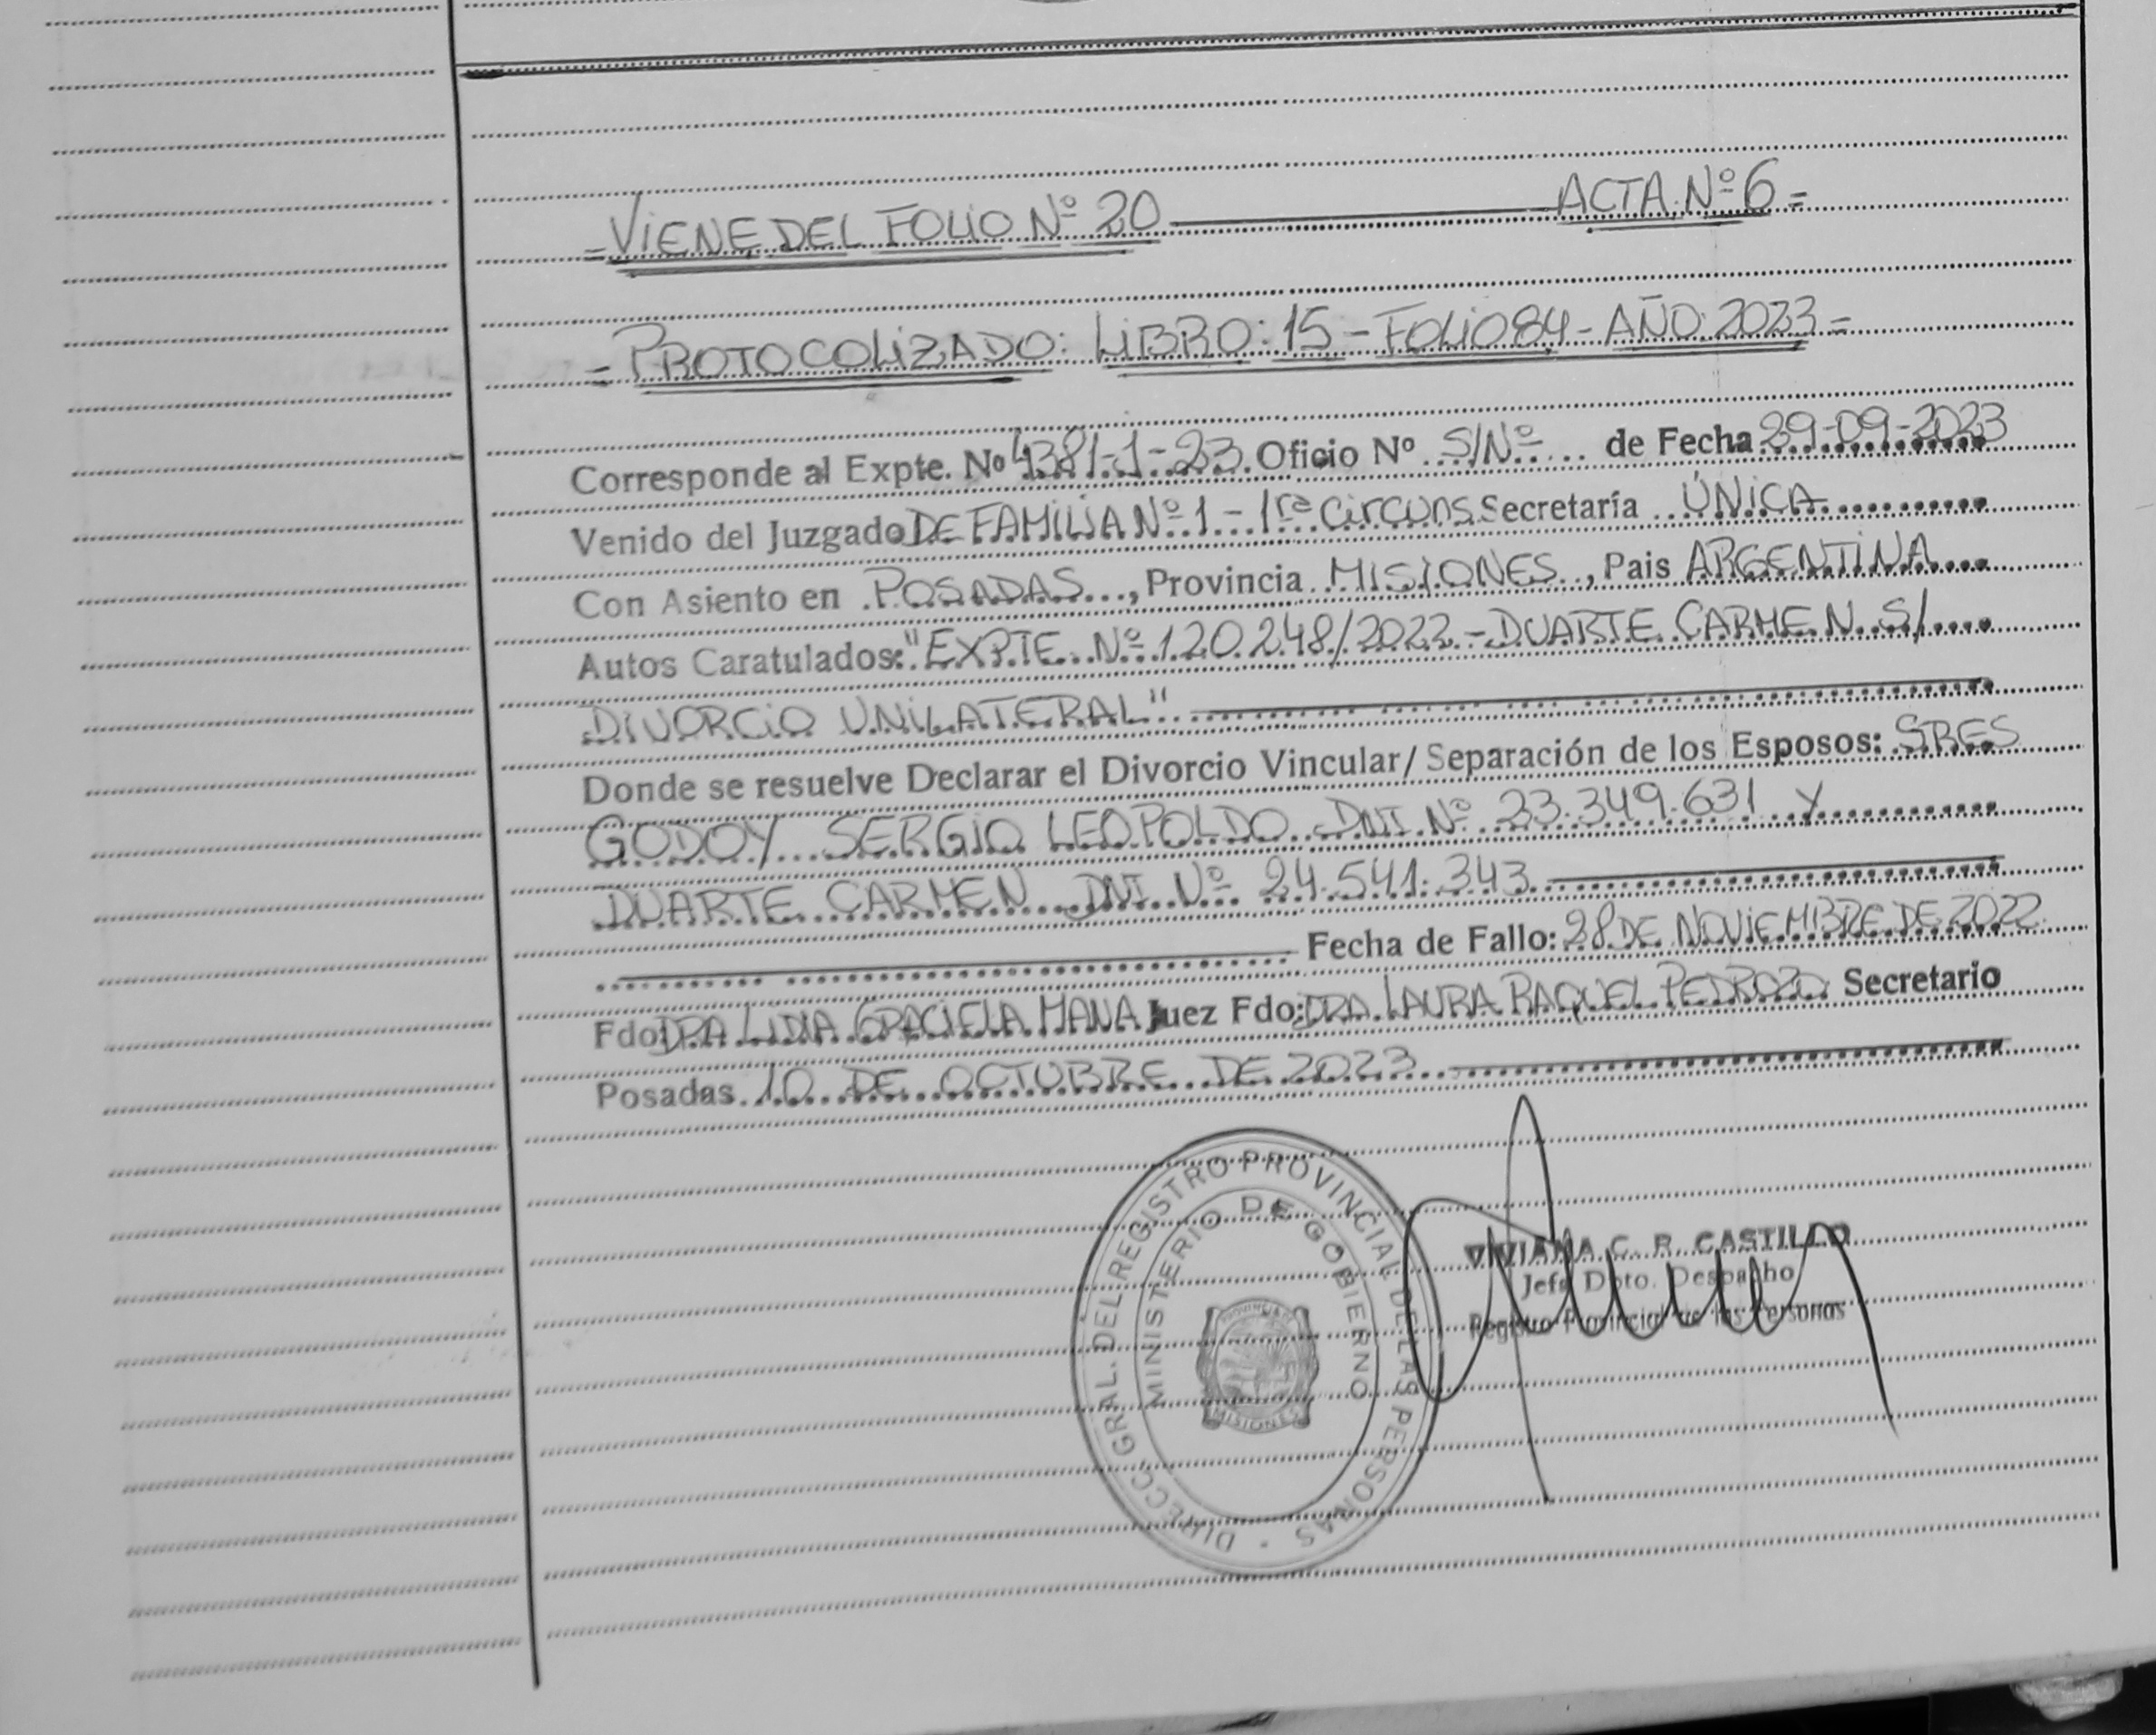 =VIENE DEL FOLIO Nº 20 ACTA Nº 6=
=PROTOCOLIZADO: LIBRO: 15 - FOLIO 84 - AÑO 2023=
Corresponde al Expte. Nº 4381-1-23 Oficio Nº S/Nº de Fecha 29-09-2023
Venido del Juzgado DE FAMILIA Nº 1 - 1ra Circuns. Secretaría ÚNICA
Con Asiento en POSADAS, Provincia MISIONES, Pais ARGENTINA
Autos Caratulados: "EXPTE. Nº 120.248/2022 - DUARTE CARMEN S/
DIVORCIO UNILATERAL"
Donde se resuelve Declarar el Divorcio Vincular/Separación de los Esposos: SRES
GODOY SERGIO LEOPOLDO DNI Nº 23.349.631 Y
DUARTE CARMEN DNI Nº 24.541.343
Fecha de Fallo: 28 DE NOVIEMBRE DE 2022
Fdo: DRA LIDIA GRACIELA MANA Juez Fdo: DRA. LAURA RAQUEL PEDROZO Secretario
Posadas 10 DE OCTUBRE DE 2023
DIRECC. GRAL. DEL REGISTRO PROVINCIAL DE LAS PERSONAS
MINISTERIO DE GOBIERNO
MISIONES
VIVIANA C. R. CASTILLO
Jefa Dpto. Despacho
Registro Provincial de las Personas